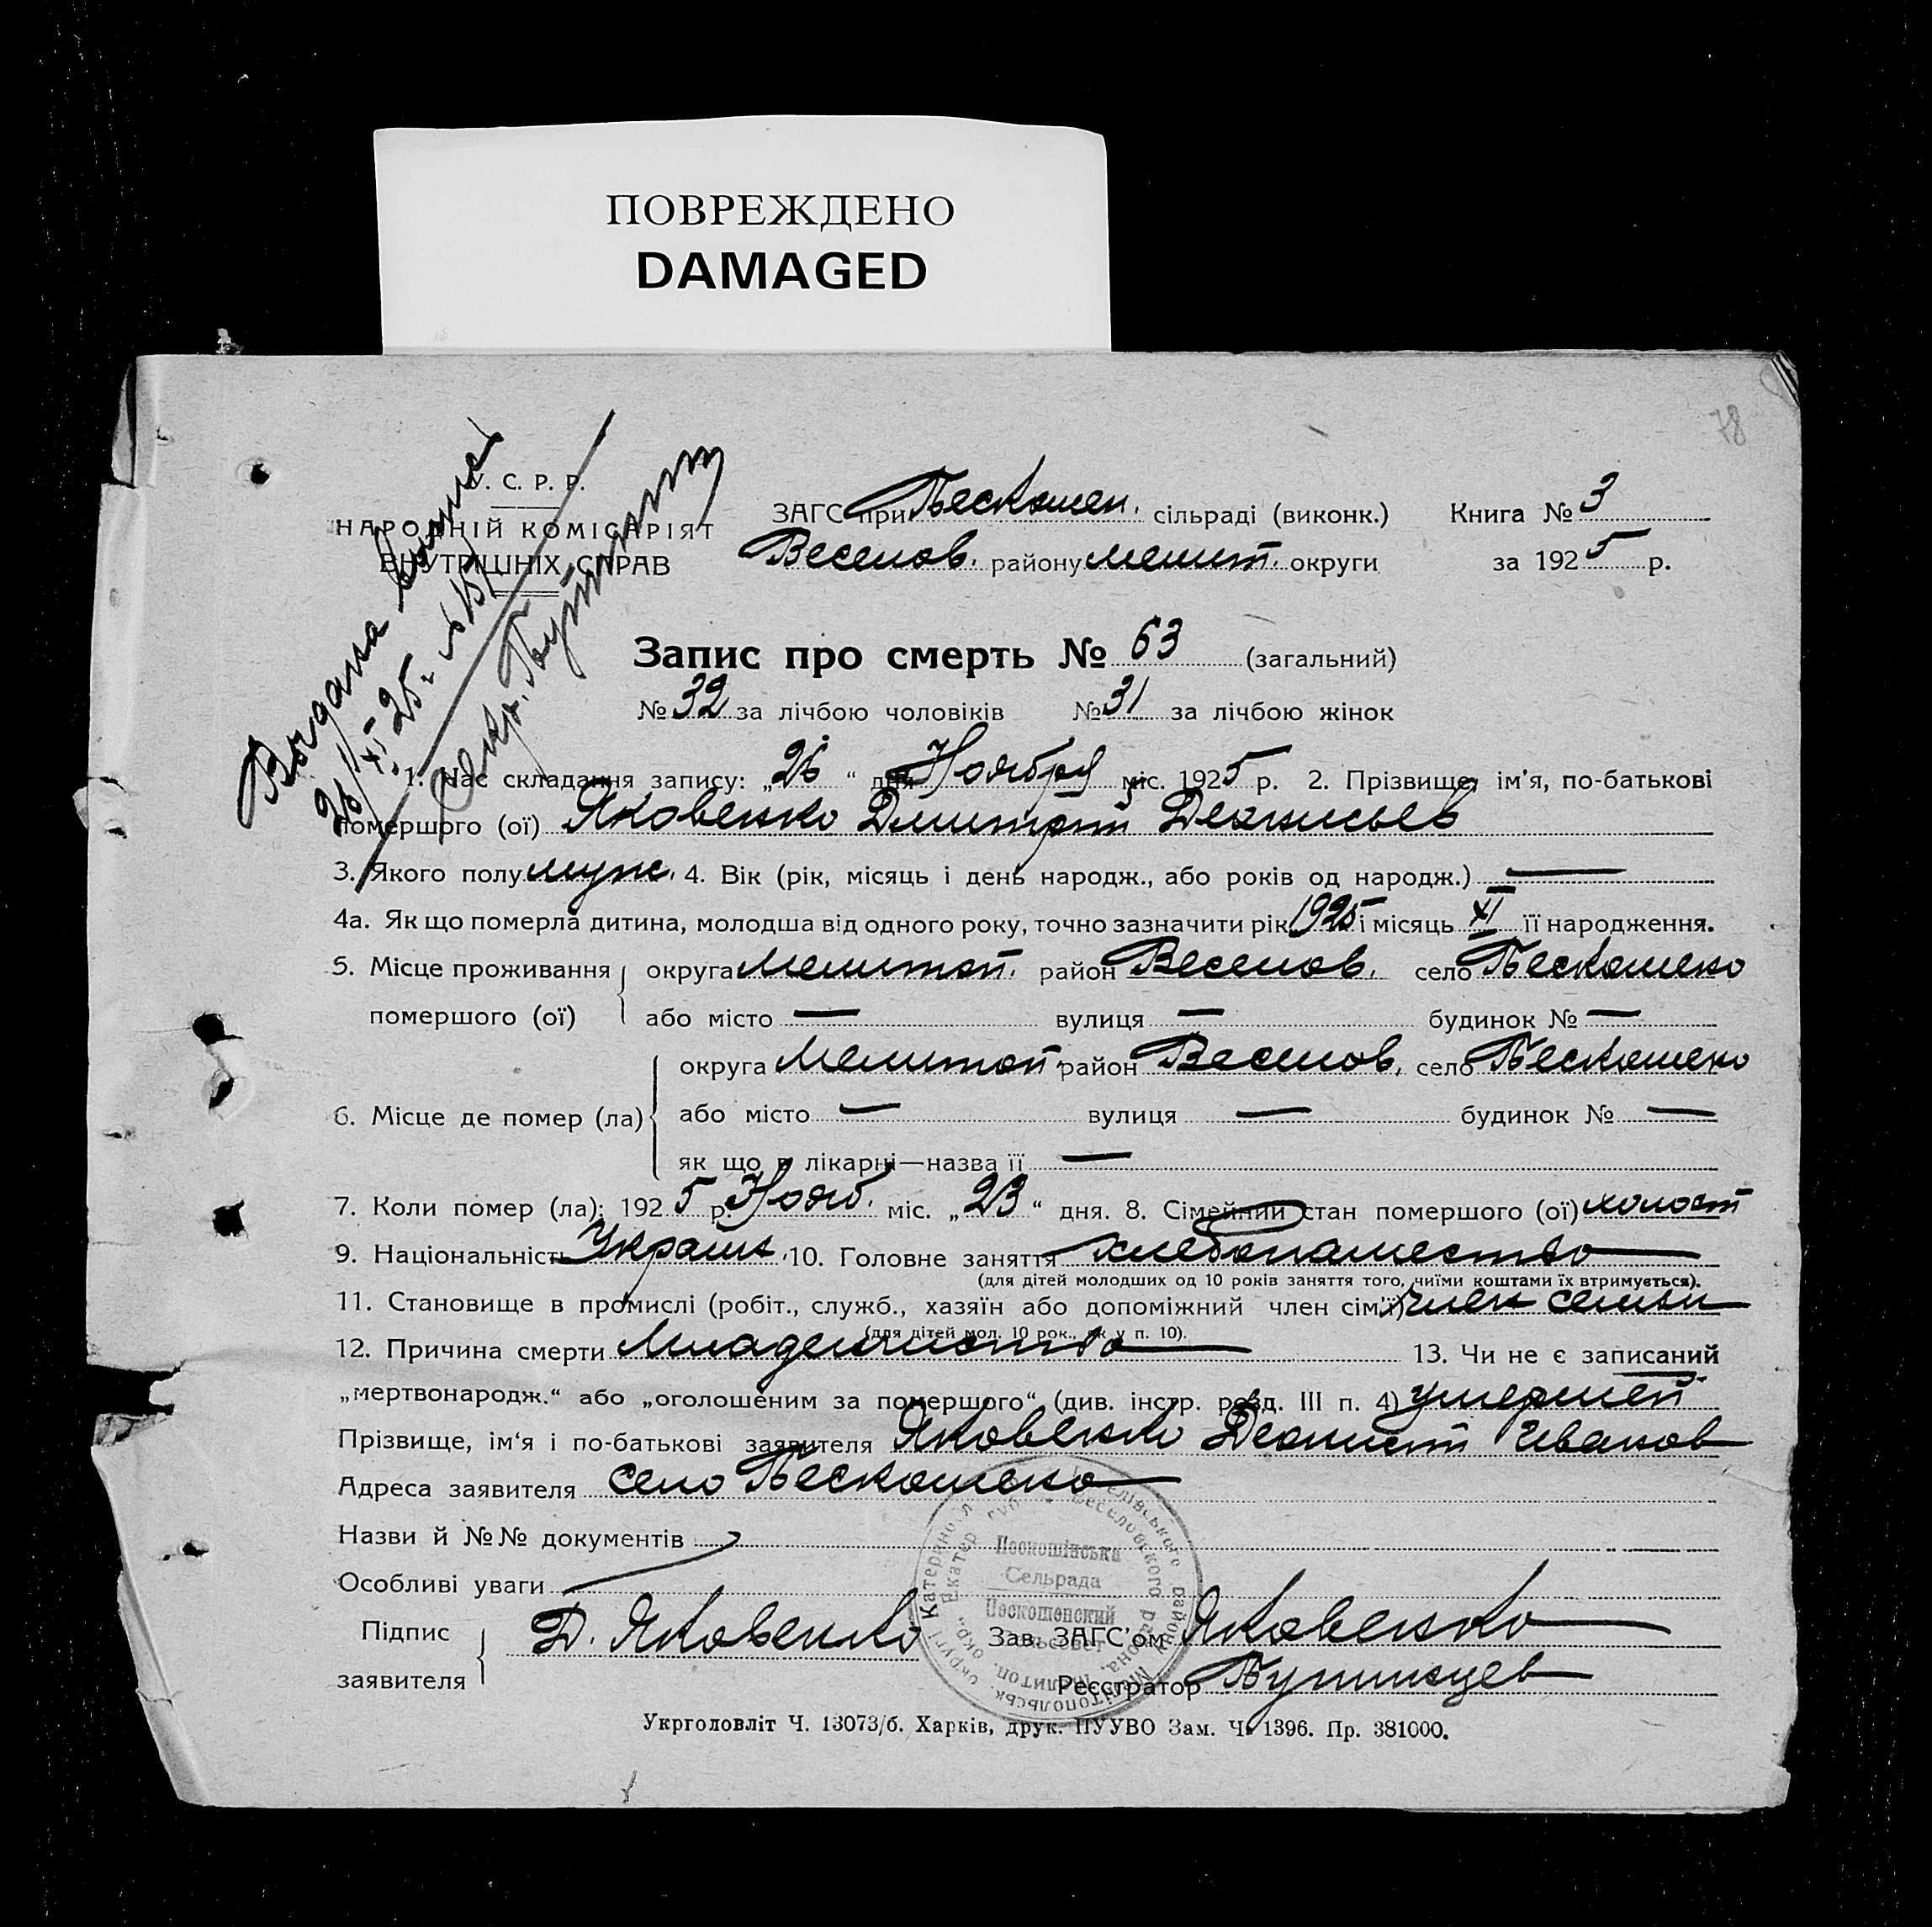 ПОВРЕЖДЕНО
DAMAGED
78
У. С. Р. Р.
НАРОДНІЙ КОМІСАРІЯТ
ВНУТРІШНІХ СПРАВ
Выдана
26/XI 25 г. №
Секр.
ЗАГС при Пескошен. сільраді (виконк.) Книга № 3
Веселов. району Мелит. округи за 1925 р.
Запис про смерть № 63 (загальний)
№ 32 за лічбою чоловіків № 31 за лічбою жінок
1. Час складання запису: „26“ дня Ноября міс. 1925 р. 2. Прізвище, ім'я, по-батькові
помершого (ої) Яковенко Дмитрий Деонисьев
3. Якого полу муж. 4. Вік (рік, місяць і день народж., або років од народж.) —
4а. Як що померла дитина, молодша від одного року, точно зазначити рік 1925 і місяць XI її народження.
5. Місце проживання помершого (ої) округа Мелитоп. район Веселов. село Пескошено
або місто — вулиця — будинок № —
6. Місце де помер (ла) округа Мелитоп. район Веселов. село Пескошено
або місто — вулиця — будинок № —
як що в лікарні—назва її —
7. Коли помер (ла): 1925 р. Нояб. міс. „23“ дня. 8. Сімейний стан помершого (ої) холост
9. Національність Украин. 10. Головне заняття хлебопашество
(для дітей молодших од 10 років заняття того, чиїми коштами їх втримується).
11. Становище в промислі (робіт., служб., хазяїн або допоміжний член сім'ї) член семьи
(для дітей мол. 10 рок., як у п. 10).
12. Причина смерти Младенчество 13. Чи не є записаний
„мертвонародж.“ або „оголошеним за помершого“ (див. інстр. розд. III п. 4) умерший
Прізвище, ім'я і по-батькові заявителя Яковенко Деонисий Иванов
Адреса заявителя село Пескошено
Назви й №№ документів
Особливі уваги
Підпис заявителя Д. Яковенко Зав. ЗАГС'ом Яковенко
Реєстратор
Пескошінська
Сельрада
Пескошенский
Сельсовет
Укрголовліт Ч. 13073/б. Харків, друк. ПУУВО Зам. Ч. 1396. Пр. 381000.